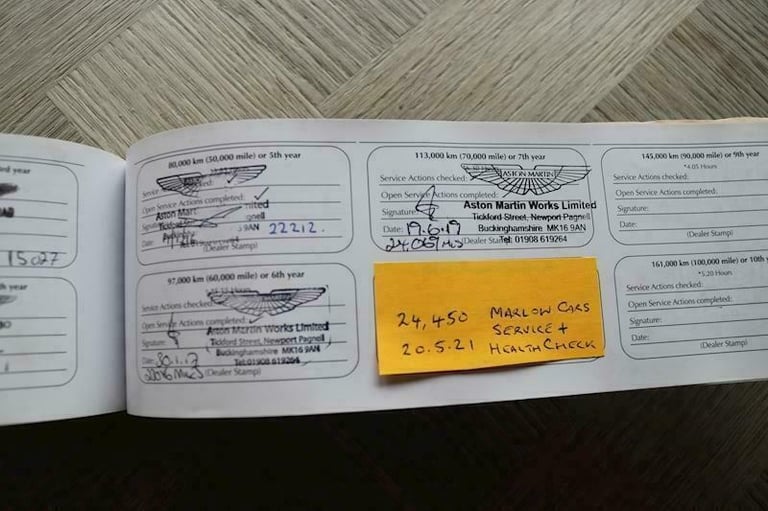 15027
80,000 km (50,000 mile) or 5th year
Service Actions checked:
Open Service Actions completed: ✓
Aston Mart
Signature:
Date:
22212.
(Dealer Stamp)
97,000 km (60,000 mile) or 6th year
Service Actions checked:
Open Service Actions completed:
Aston Martin Works Limited
Signature:
Tickford Street, Newport Pagnell
Buckinghamshire MK16 9AN
Date:
Tel: 01908 619264
(Dealer Stamp)
113,000 km (70,000 mile) or 7th year
Service Actions checked:
ASTON MARTIN
Open Service Actions completed:
Aston Martin Works Limited
Signature:
Tickford Street, Newport Pagnell
Date: 19.6.19
Buckinghamshire MK16 9AN
(Dealer Stamp)
Tel: 01908 619264
24,450 MARLOW CARS
SERVICE +
20.5.21 HEALTH CHECK
145,000 km (90,000 mile) or 9th year
*4.05 Hours
Service Actions checked:
Open Service Actions completed:
Signature:
Date:
(Dealer Stamp)
161,000 km (100,000 mile) or 10th y
*5.20 Hours
Service Actions checked:
Open Service Actions completed:
Signature:
Date:
(Dealer Stamp)